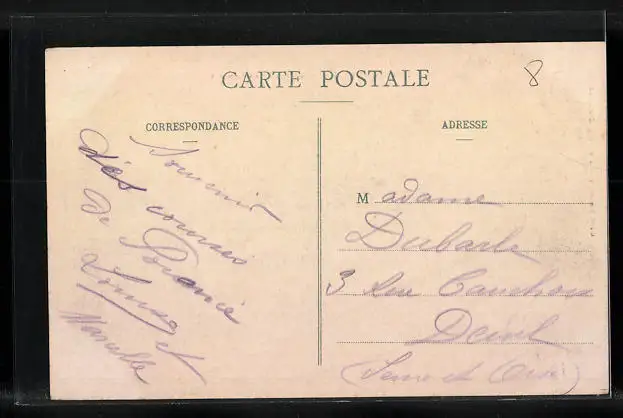 CARTE POSTALE
8
CORRESPONDANCE
Souvenir
des courses
De
et
Marcelle
ADRESSE
Madame
Dubarle
3 Rue Cauchoix
Deuil
(Seine et Oise)